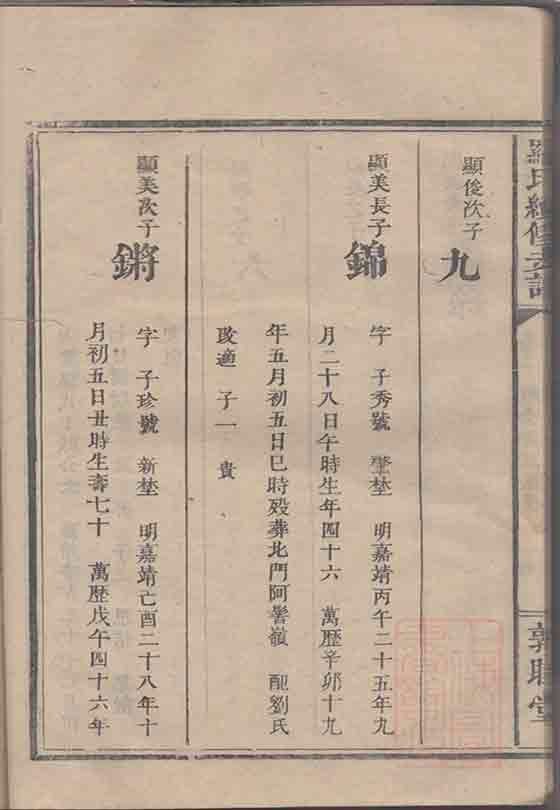 羅氏續修支譜
敦睦堂
顯俊次子
九
顯美長子
錦
字 子秀號 肇埜 明嘉靖丙午二十五年九
月二十八日午時生年四十六 萬歷辛卯十九
年五月初五日巳時歿葬北門阿髻嶺 配劉氏
改適 子一 貴
顯美次子
鏘
字 子珍號 新埜 明嘉靖己酉二十八年十
月初五日丑時生壽七十 萬歷戊午四十六年